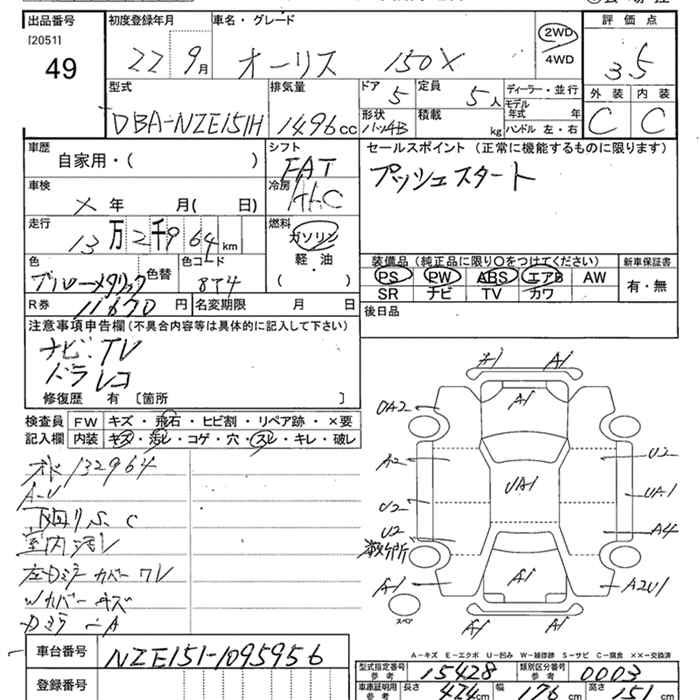 出品番号
[2051]
49
初度登録年月
22 9月
車名・グレード
オーリス 150X
2WD
4WD
評価点
3.5
外装 内装
C C
型式
DBA-NZE151H
排気量
1496cc
ドア
5
形状
定員
5人
積載
kg
ディーラー・並行
モデル年式 年
ハンドル 左・右
車歴
自家用・( )
シフト
FAT
セールスポイント(正常に機能するものに限ります)
プッシュスタート
車検
×年 月( 日)
冷房
AAC
走行
13万2千964km
燃料
ガソリン
軽・油
( )
色
ブルーメタリック
色替
色コード
8T4
装備品(純正品に限り○をつけてください)
PS PW ABS エアB AW
SR ナビ TV カワ
新車保証書
有・無
R券
11670円
名変期限 月 日
後日品
注意事項申告欄(不具合内容等は具体的に記入して下さい)
ナビ.TV
ドラレコ
修復歴 有 [箇所 ]
検査員記入欄
FW キズ・飛石・ヒビ割・リペア跡・×要
内装 キズ・汚レ・コゲ・穴・スレ・キレ・破レ
132964
A-U
下回りS.C
室内汚レ
左Dミラーカバーワレ
Wカバーキズ
DミラーA
A1 A1
A1
UA2
A2
U2
U2
UA1
U2
UA1
A4
A1
A1
A2U1
A1 A1
スペア
A-キズ E-エクボ U-凹み W-補修跡 S-サビ C-腐食 ××-交換済
車台番号
NZE151-1095956
登録番号
型式指定番号 参考
15428
類別区分番号 参考
0003
車庫証明用 参考
長さ 424cm 幅 176cm 高さ 151cm